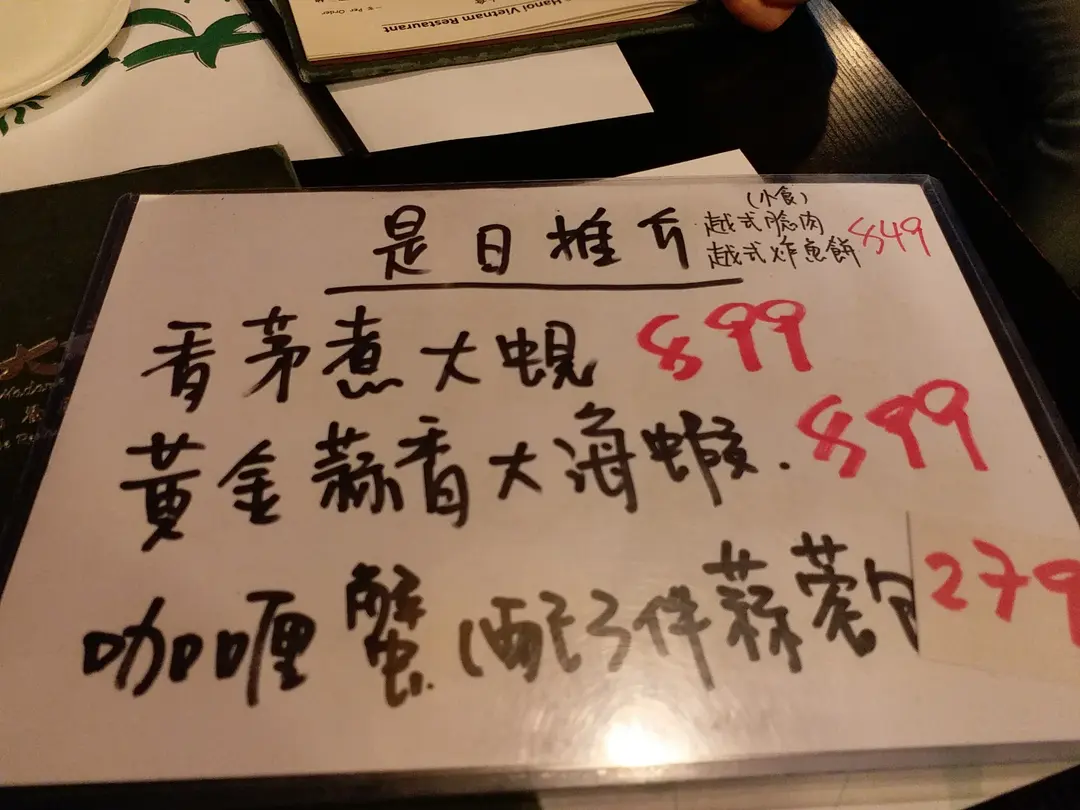 Hanoi Vietnam Restaurant
Per Order
是日推介
(小食)
越式脍肉
越式炸魚餅 $49
香茅煮大蜆 $99
黃金蒜香大海蝦. $99
咖喱蟹(配3件蒜蓉包 279
大
Madam